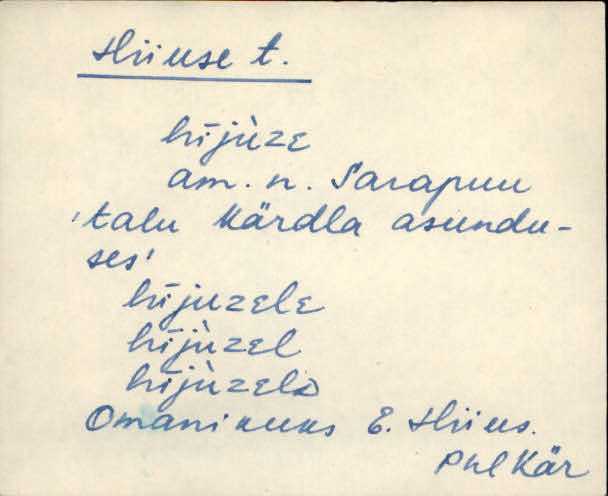 Hiiuse t.
hījùzᴇ
am. n. Sarapuu
'talu Kärdla asundu-
ses'
hījuzelᴇ
hījùzel
hījùzelᴅ
Omanikuks E. Hiius.
Phl Kär